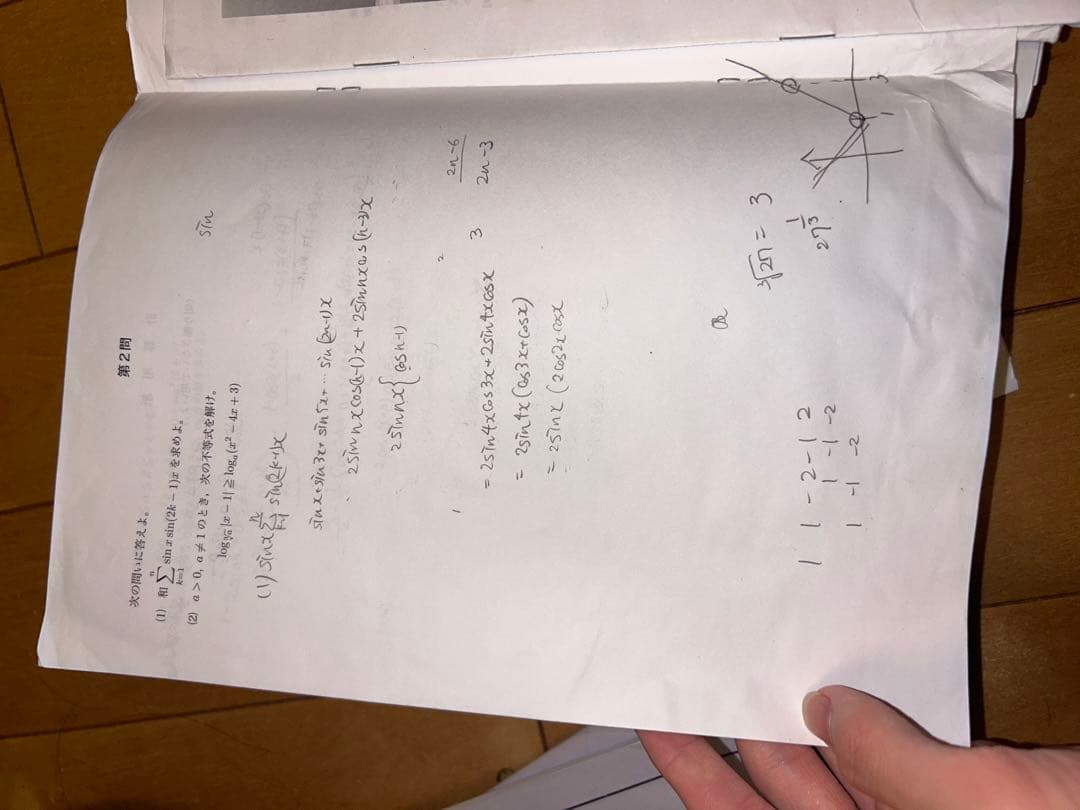 第2問
次の問いに答えよ。
(1) 和 $\sum_{k=1}^{n} \sin x \sin(2k-1)x$ を求めよ。
(2) a > 0, a ≠ 1 のとき, 次の不等式を解け。
$\log_{\sqrt[3]{a}}|x-1| \geqq \log_a(x^2-4x+3)$
sin
(1) $\sin x \sum_{k=1}^{n} \sin(2k-1)x$
sinx+sin3x+ sin5x+ … sin(2n-1)x
2sinnxcos(n-1)x + 2sinnxcos(n-3)x
2sinnx{ cosn-1)
2n-6
2n-3
2
3
= 2sin4xcos3x+2sin4xcosx
= 2sin4x(cos3x+cosx)
= 2sinx(2cos2xcosx
$\sqrt[3]{27}$ = 3
$27^{\frac{1}{3}}$
1 3
1 | 1 -2 -1 2
1 -1 -2
1 -1 -2